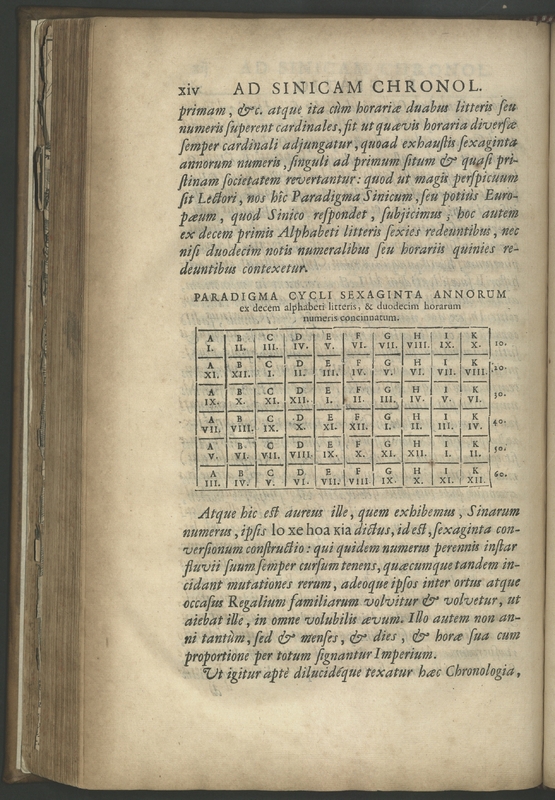 xiv AD SINICAM CHRONOL.
primam, &c. atque ita cùm horariæ duabus litteris ſeu
numeris ſuperent cardinales, fit ut quævis horaria diverſæ
ſemper cardinali adjungatur, quoad exhauſtis ſexaginta
annorum numeris, ſinguli ad primum ſitum & quaſi pri-
ſtinam ſocietatem revertantur: quod ut magis perſpicuum
ſit Lectori, nos hîc Paradigma Sinicum, ſeu potiùs Euro-
pæum, quod Sinico reſpondet, ſubjicimus, hoc autem
ex decem primis Alphabeti litteris ſexies redeuntibus, nec
niſi duodecim notis numeralibus ſeu horariis quinies re-
deuntibus contexetur.
PARADIGMA CYCLI SEXAGINTA ANNORUM
ex decem alphabeti litteris, & duodecim horarum
numeris concinnatum.
A B C D E F G H I K
I. II. III. IV. V. VI. VII. VIII. IX. X. 10.
A B C D E F G H I K
XI. XII. I. II. III. IV. V. VI. VII. VIII. 20.
A B C D E F G H I K
IX. X. XI. XII. I. II. III. IV. V. VI. 30.
A B C D E F G H I K
VII. VIII. IX. X. XI. XII. I. II. III. IV. 40.
A B C D E F G H I K
V. VI. VII. VIII IX. X. XI. XII. I. II. 50.
A B C D E F G H I K
III. IV. V. VI. VII. VIII IX. X. XI. XII. 60.
Atque hic eſt aureus ille, quem exhibemus, Sinarum
numerus, ipſis lo xe hoa kia dictus, id eſt, ſexaginta con-
verſionum conſtructio: qui quidem numerus perennis inſtar
fluvii ſuum ſemper curſum tenens, quæcumque tandem in-
cidant mutationes rerum, adeoque ipſos inter ortus atque
occaſus Regalium familiarum volvitur & volvetur, ut
aiebat ille, in omne volubilis ævum. Illo autem non an-
ni tantùm, ſed & menſes, & dies, & horæ ſua cum
proportione per totum ſignantur Imperium.
Ut igitur aptè dilucidéque texatur hæc Chronologia,